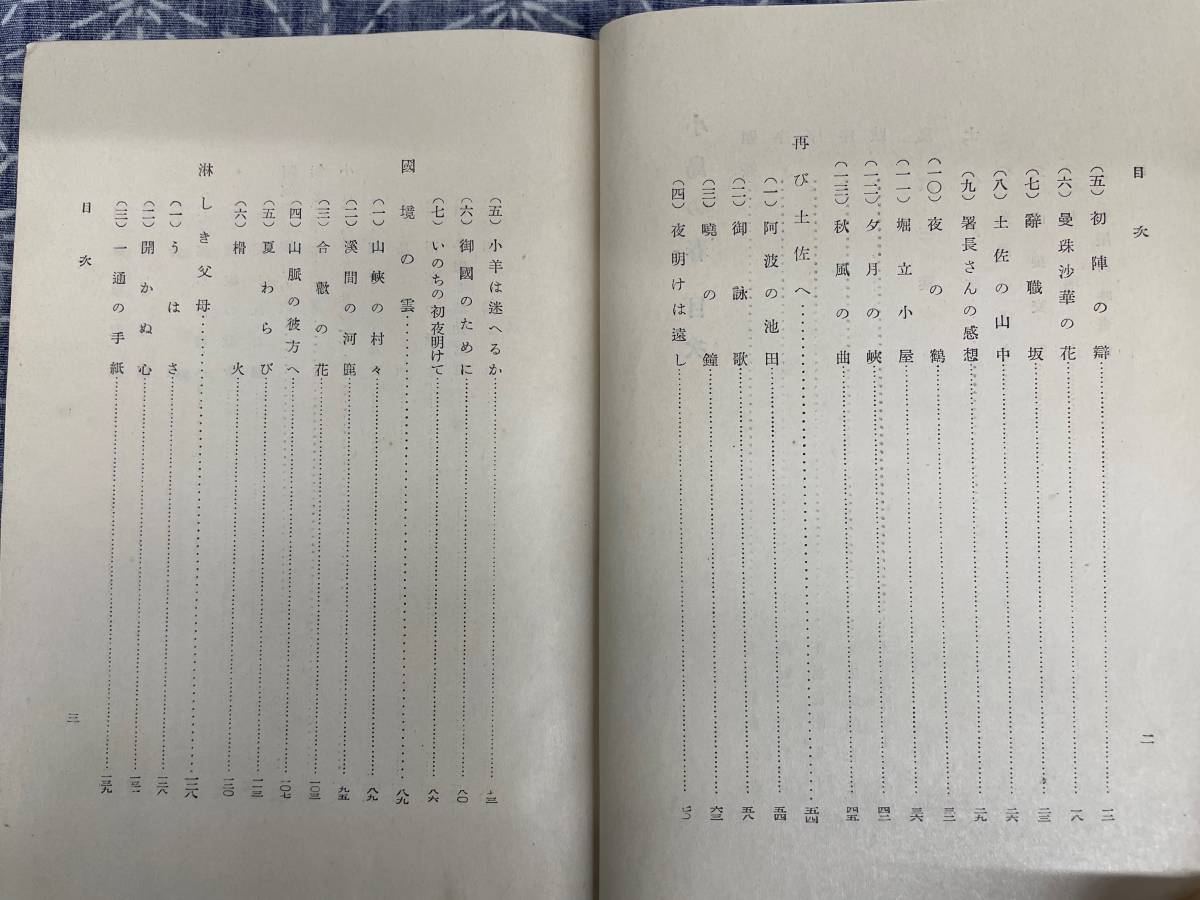 目次
(五) 初陣の辯 一二
(六) 曼珠沙華の花 一八
(七) 辭職坂 二三
(八) 土佐の山中 二六
(九) 署長さんの感想 二九
(一〇) 夜の鶴 三二
(一一) 堀立小屋 三六
(一二) 夕月の峽 四二
(一三) 秋風の曲 四五
再び土佐へ 五四
(一) 阿波の池田 五四
(二) 御詠歌 五八
(三) 曉の鐘 六三
(四) 夜明けは遠し
二
(五) 小羊は迷へるか
(六) 御國のために 八〇
(七) いのちの初夜明けて 八六
國境の雲 八九
(一) 山峽の村々 八九
(二) 溪間の河鹿 九五
(三) 合歡の花 一〇三
(四) 山脈の彼方へ 一〇七
(五) 夏わらび 一一三
(六) 榾火 一二〇
淋しき父母 一二八
(一) うはさ 一二八
(二) 開かぬ心
(三) 一通の手紙 一三九
目次
三